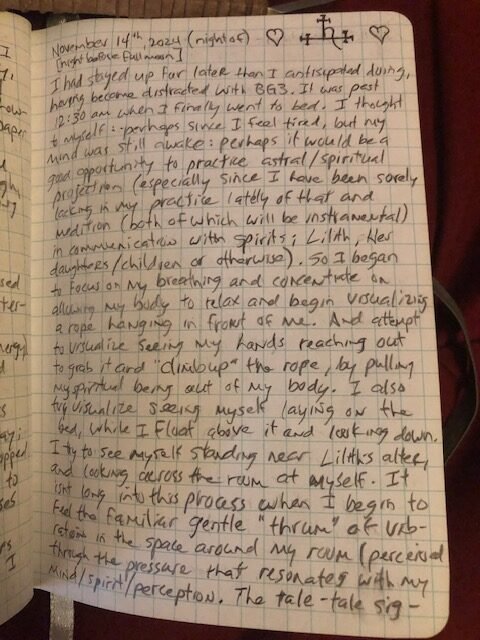 November 14th, 2024 (night of)
[night before full moon]
I had stayed up far later than I antisipated doing,
having become distracted with BG3. It was past
12:30 am when I finally went to bed. I thought
to myself: perhaps since I feel tired, but my
mind was still awake: perhaps it would be a
good opportunity to practice astral/spiritual
projection (especially since I have been sorely
lacking in my practice lately of that and
medition (both of which will be instramental)
in communication with spirits; Lilith, Her
daughters/children or otherwise). So I began
to focus on my breathing and concentrate on
allowing my body to relax and begin visualizing
a rope hanging in front of me. And attempt
to visualize seeing my hands reaching out
to grab it and "climb up" the rope, by pulling
my spiritual being out of my body. I also
try visualize seeing myself laying on the
bed, while I float above it and looking down.
I try to see myself standing near Liliths alter,
and looking across the room at myself. It
isnt long into this process when I begin to
feel the familiar gentle "thrum" of vib-
rations in the space around my room (perceived
through the pressure that resonates with my
mind/spirit/perception. The tale-tale sig-